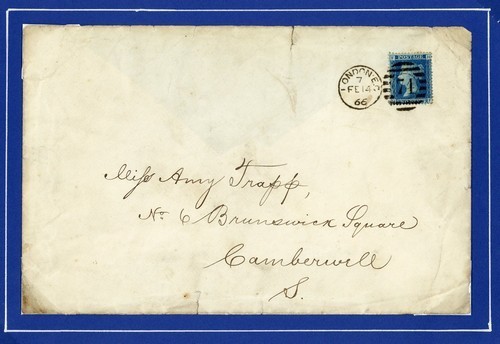 POSTAGE
LONDON E.C
7
FE 14
66
Miſs Amy Trapp,
No. 6 Brunswick Square
Camberwell
S.